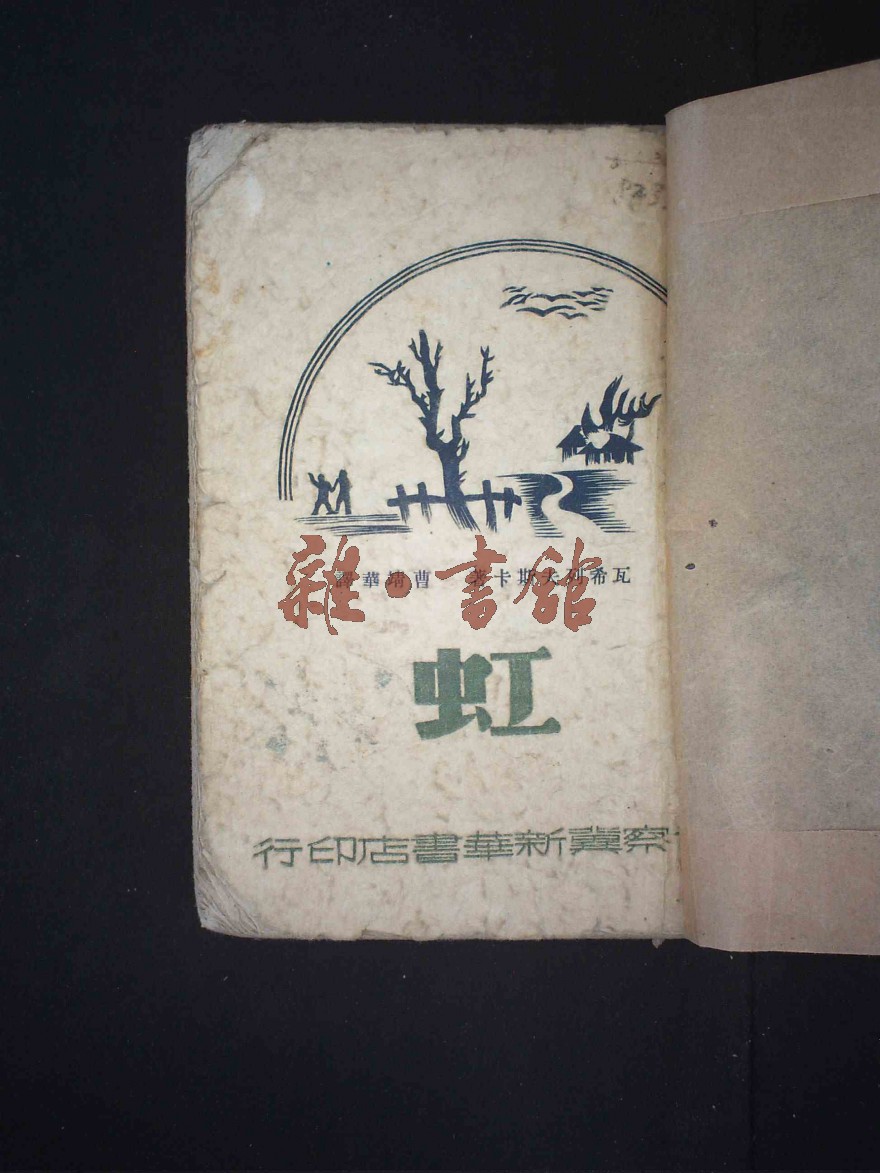 瓦希列夫斯卡著 曹靖華譯
雜·書館
虹
察冀新華書店印行